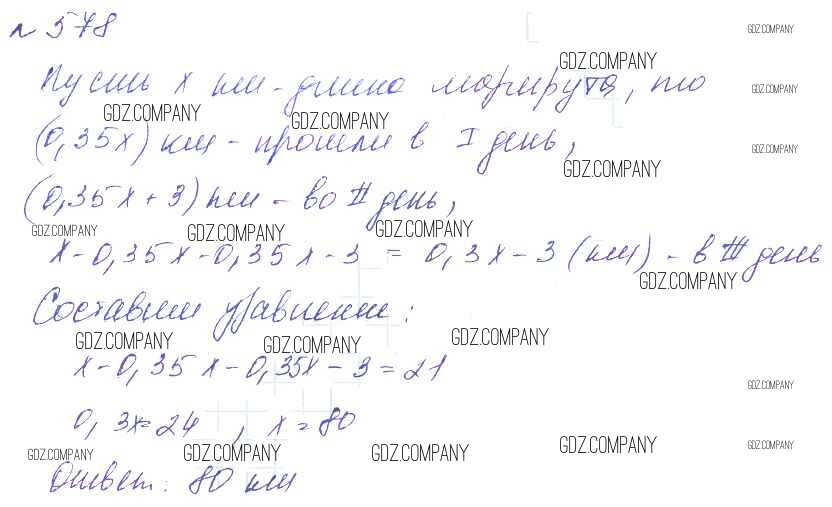 № 578
GDZ.COMPANY
GDZ.COMPANY
Пусть х км - длина маршрута, то
GDZ.COMPANY
GDZ.COMPANY GDZ.COMPANY
(0,35х) км - прошли в I день,
GDZ.COMPANY
GDZ.COMPANY
(0,35х + 3) км - во II день,
GDZ.COMPANY GDZ.COMPANY GDZ.COMPANY
х - 0,35х - 0,35х - 3 = 0,3х - 3 (км) - в III день
GDZ.COMPANY
Составим уравнение:
GDZ.COMPANY GDZ.COMPANY GDZ.COMPANY
х - 0,35х - 0,35х - 3 = 21
GDZ.COMPANY
0,3х = 24, х = 80
GDZ.COMPANY GDZ.COMPANY GDZ.COMPANY GDZ.COMPANY GDZ.COMPANY
Ответ: 80 км